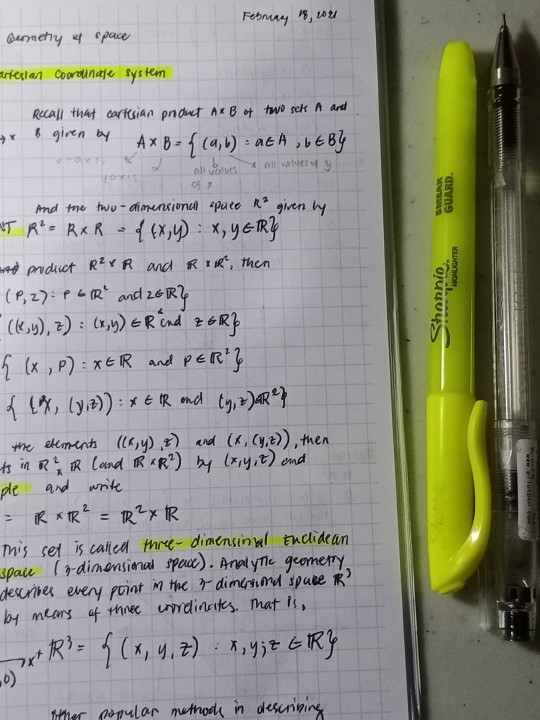 February 18, 2021
Geometry of space
artesian Coordinate system
Recall that cartesian product A×B of two sets A and
B given by A × B = { (a,b) : a∈A , b∈B}
x-axis
y axis
all values of x
all values of y
And the two-dimensional space R² given by
R² = R × R = { (x,y) : x, y ∈ R}
product R² × R and R × R², then
(P, z) : P ∈ R² and z∈R}
((x,y), z) : (x,y) ∈ R² and z ∈ R}
{ (x , P) : x ∈ R and P ∈ R² }
{ (x, (y,z)) : x ∈ R and (y,z)∈R²}
the elements ((x,y),z) and (x,(y,z)), then
ts in R² × R (and R × R²) by (x,y,z) and
ple and write
= R × R² = R² × R
This set is called three-dimensinal Euclidean
space (3-dimensional space). Analytic geometry
describes every point in the 3-dimensional space R³
by means of three coordinates. That is,
R³ = { (x, y, z) : x,y,z ∈ R}
x+
,0)
other popular methods in describing
Sharpie.
HIGHLIGHTER
SMEAR
GUARD.